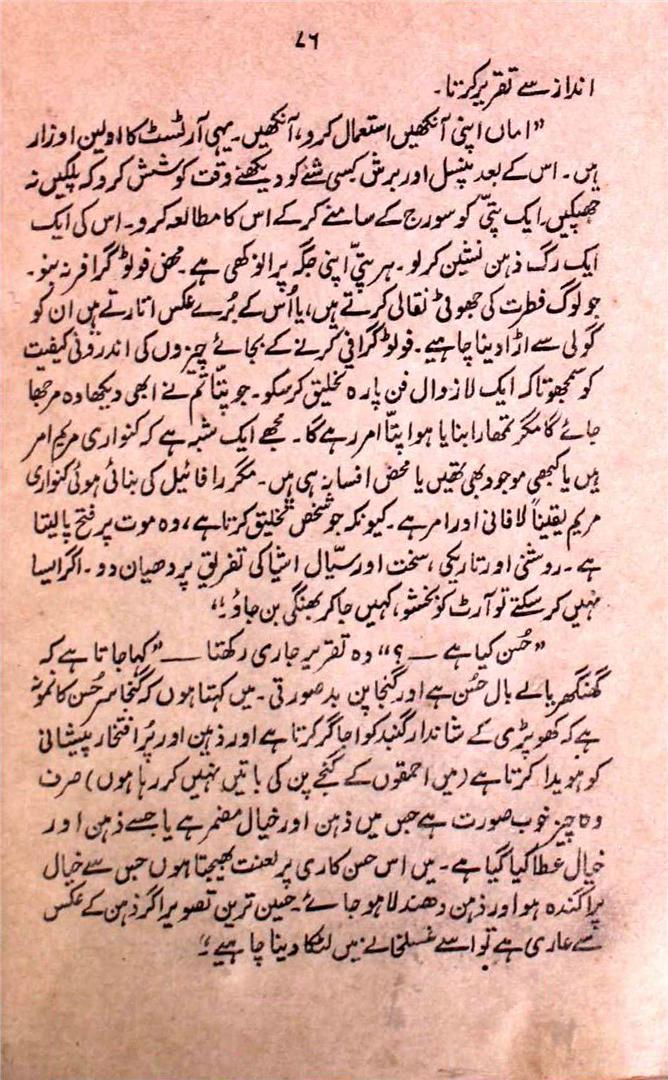 ۷۶
انداز سے تقریر کرتا۔
”اماں اپنی آنکھیں استعمال کرو، آنکھیں۔ یہی آرٹسٹ کا اولین اوزار
ہیں۔ اس کے بعد پنسل اور برش کسی شے کو دیکھنے وقت کوشش کرو کہ پلکیں نہ
جھپکیں۔ ایک پتیّ کو سورج کے سامنے کرکے اس کا مطالعہ کرو۔ اس کی ایک
ایک رگ ذہن نشین کرلو۔ ہر پتیّ اپنی جگہ پر انوکھی ہے۔ محض فوٹو گرافر نہ بنو۔
جو لوگ فطرت کی جھوٹی نقالی کرتے ہیں، یا اُس کے بُرے عکس اتارتے ہیں ان کو
گولی سے اڑا دینا چاہیے۔ فوٹو گرافی کرنے کے بجائے چیزوں کی اندرونی کیفیت
کو سمجھو تاکہ ایک لازوال فن پارہ تخلیق کر سکو۔ جو پتّا تم نے ابھی دیکھا وہ مرجھا
جائے گا مگر تمھارا بنایا ہوا پتّا امر رہے گا۔ مجھے ایک شبہ ہے کہ کنواری مریم امر
ہیں یا کبھی موجود بھی تھیں یا محض افسانہ ہی ہیں۔ مگر رافائیل کی بنائی ہوئی کنواری
مریم یقیناً لافانی اور امر ہے۔ کیونکہ جو شخص تخلیق کرتا ہے، وہ موت پر فتح پالیتا
ہے۔ روشنی اور تاریکی، سخت اور سیّال اشیا کی تفریق پر دھیان دو۔ اگر ایسا
نہیں کر سکتے تو آرٹ کو بخشو، کہیں جاکر بھنگی بن جاؤ۔“
”حُسن کیا ہے ــــ ؟“ وہ تقریر جاری رکھتا ــــ ”کہا جاتا ہے کہ
گھنگھریالے بال حُسن ہے اور گنجا پن بدصورتی۔ میں کہتا ہوں کہ گنجا سر حُسن کا نمونہ
ہے کہ کھوپڑی کے شاندار گنبد کو اجاگر کرتا ہے اور ذہین اور پُر افتخار پیشانی
کو ہویدا کرتا ہے (میں احمقوں کے گنجے پن کی باتیں نہیں کر رہا ہوں) صرف
وہ چیز خوب صورت ہے جس میں ذہن اور خیال مضمر ہے یا جسے ذہن اور
خیال عطا کیا گیا ہے۔ میں اس حسن کاری پر لعنت بھیجتا ہوں جس سے خیال
پراگندہ ہو اور ذہن دھندلا ہو جائے۔ حسین ترین تصویر اگر ذہن کے عکس
سے عاری ہے تو اسے غسلخانے میں لٹکا دینا چاہیے۔“